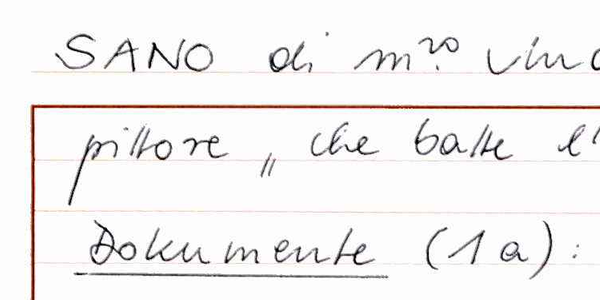 SANO di m.ro
pittore „ che batte l'
Dokumente (1a):